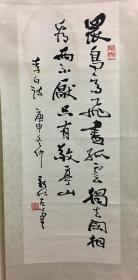 眾鳥高飛盡孤雲獨去閑相
看兩不厭只有敬亭山
李白詩 庚申冬仲